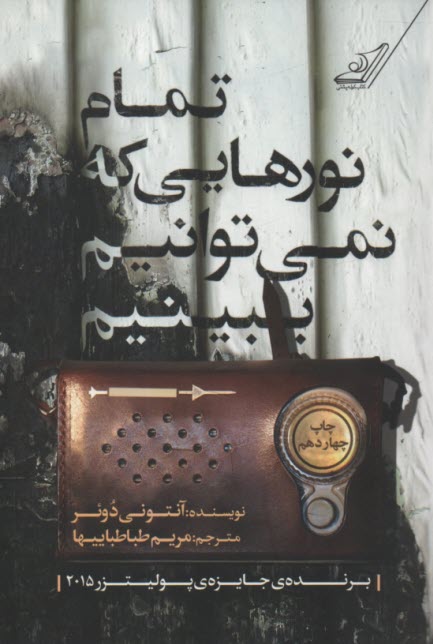 تمام
نورهایی‌که
نمی‌توانیم
ببینیم
چاپ
چهاردهم
نویسنده: آنتونی دُوئر
مترجم: مریم طباطباییها
| برنده‌ی جایزه‌ی پولیتزر ۲۰۱۵ |